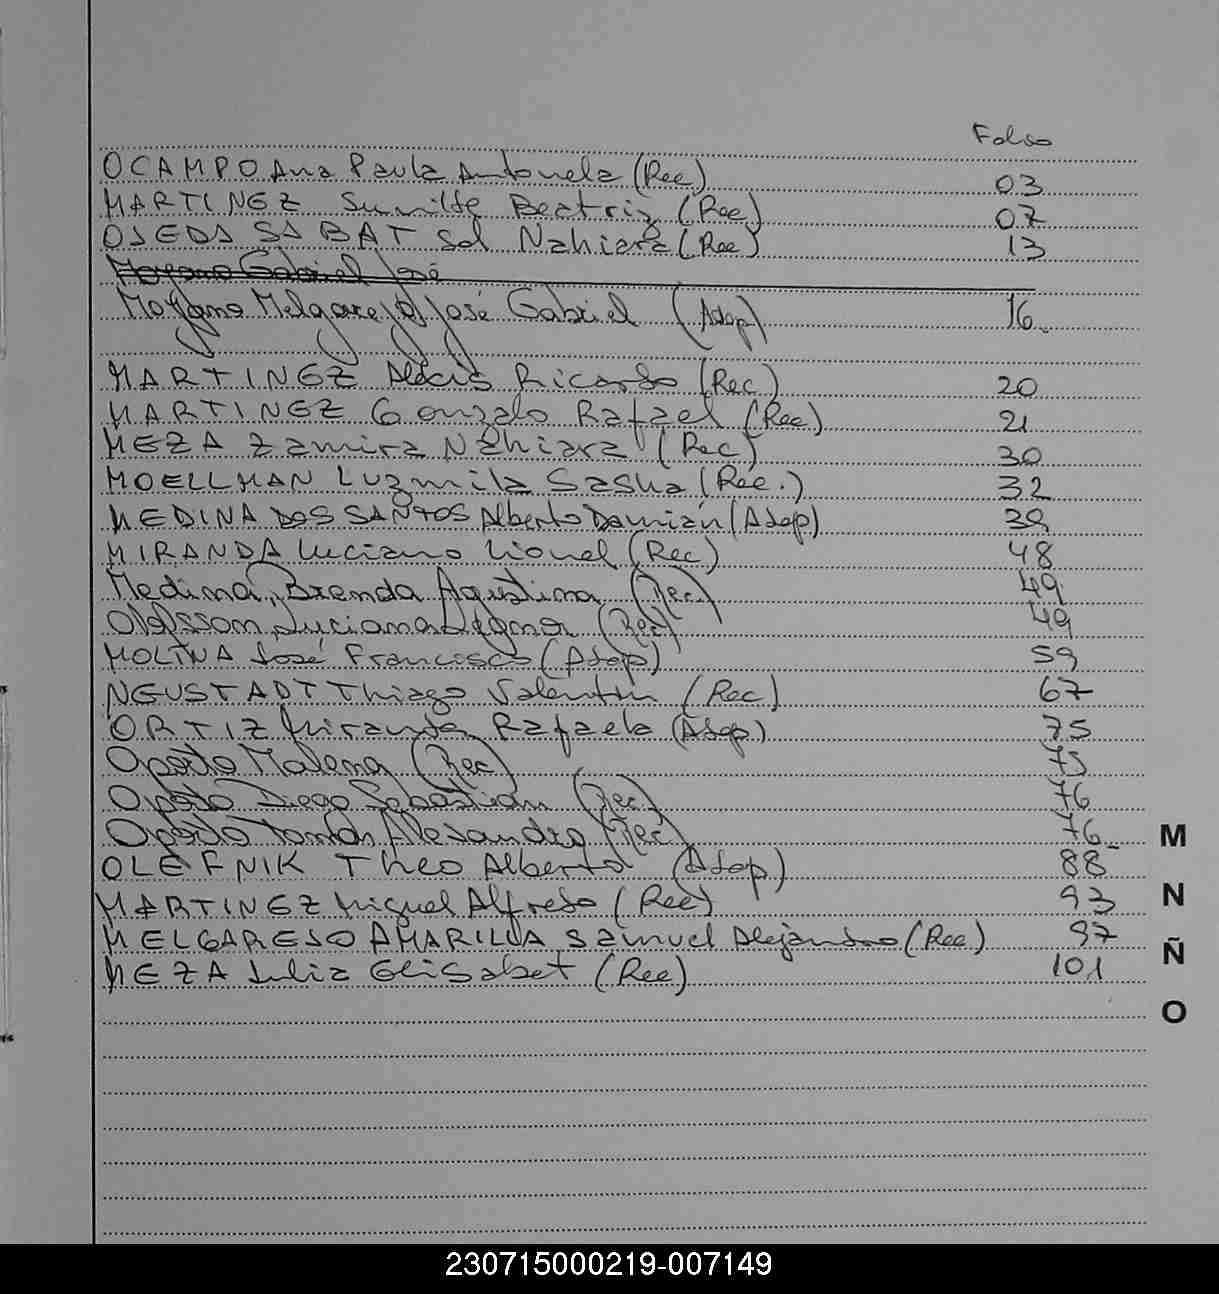 Folio
OCAMPO Ana Paula Antonela (Rec) 03
MARTINEZ Sunilde Beatriz (Rec) 07
OJEDA SABAT Sol Nahiara (Rec) 13
Moyano Gabriel José
Moyano Melgarejo José Gabriel (Adop) 16
MARTINEZ Alexis Ricardo (Rec) 20
MARTINEZ Gonzalo Rafael (Rec) 21
MEZA Zamira Nahiara (Rec) 30
MOELLMAN Luzmila Sasha (Rec.) 32
MEDINA DOS SANTOS Alberto Damián (Adop) 39
MIRANDA Luciano Lionel (Rec) 48
Medina, Brenda Agustina (Rec.) 49
Olafsson, Luciana Dagmar (Rec) 49
MOLINA José Francisco (Adop) 59
NEUSTADT Thiago Valentin (Rec) 67
ORTIZ Miranda Rafaela (Adop) 75
Oporto Malena (Rec) 75
Oporto Diego Sebastián (Rec.) 76
Oporto Tomás Alesandro (Rec) 76
OLEFNIK Theo Alberto (Adop) 88
MARTINEZ Miguel Alfredo (Rec) 93
MELGAREJO AMARILLA Samuel Alejandro (Rec) 97
MEZA Julia Elisabet (Rec) 101
M
N
Ñ
O
230715000219-007149